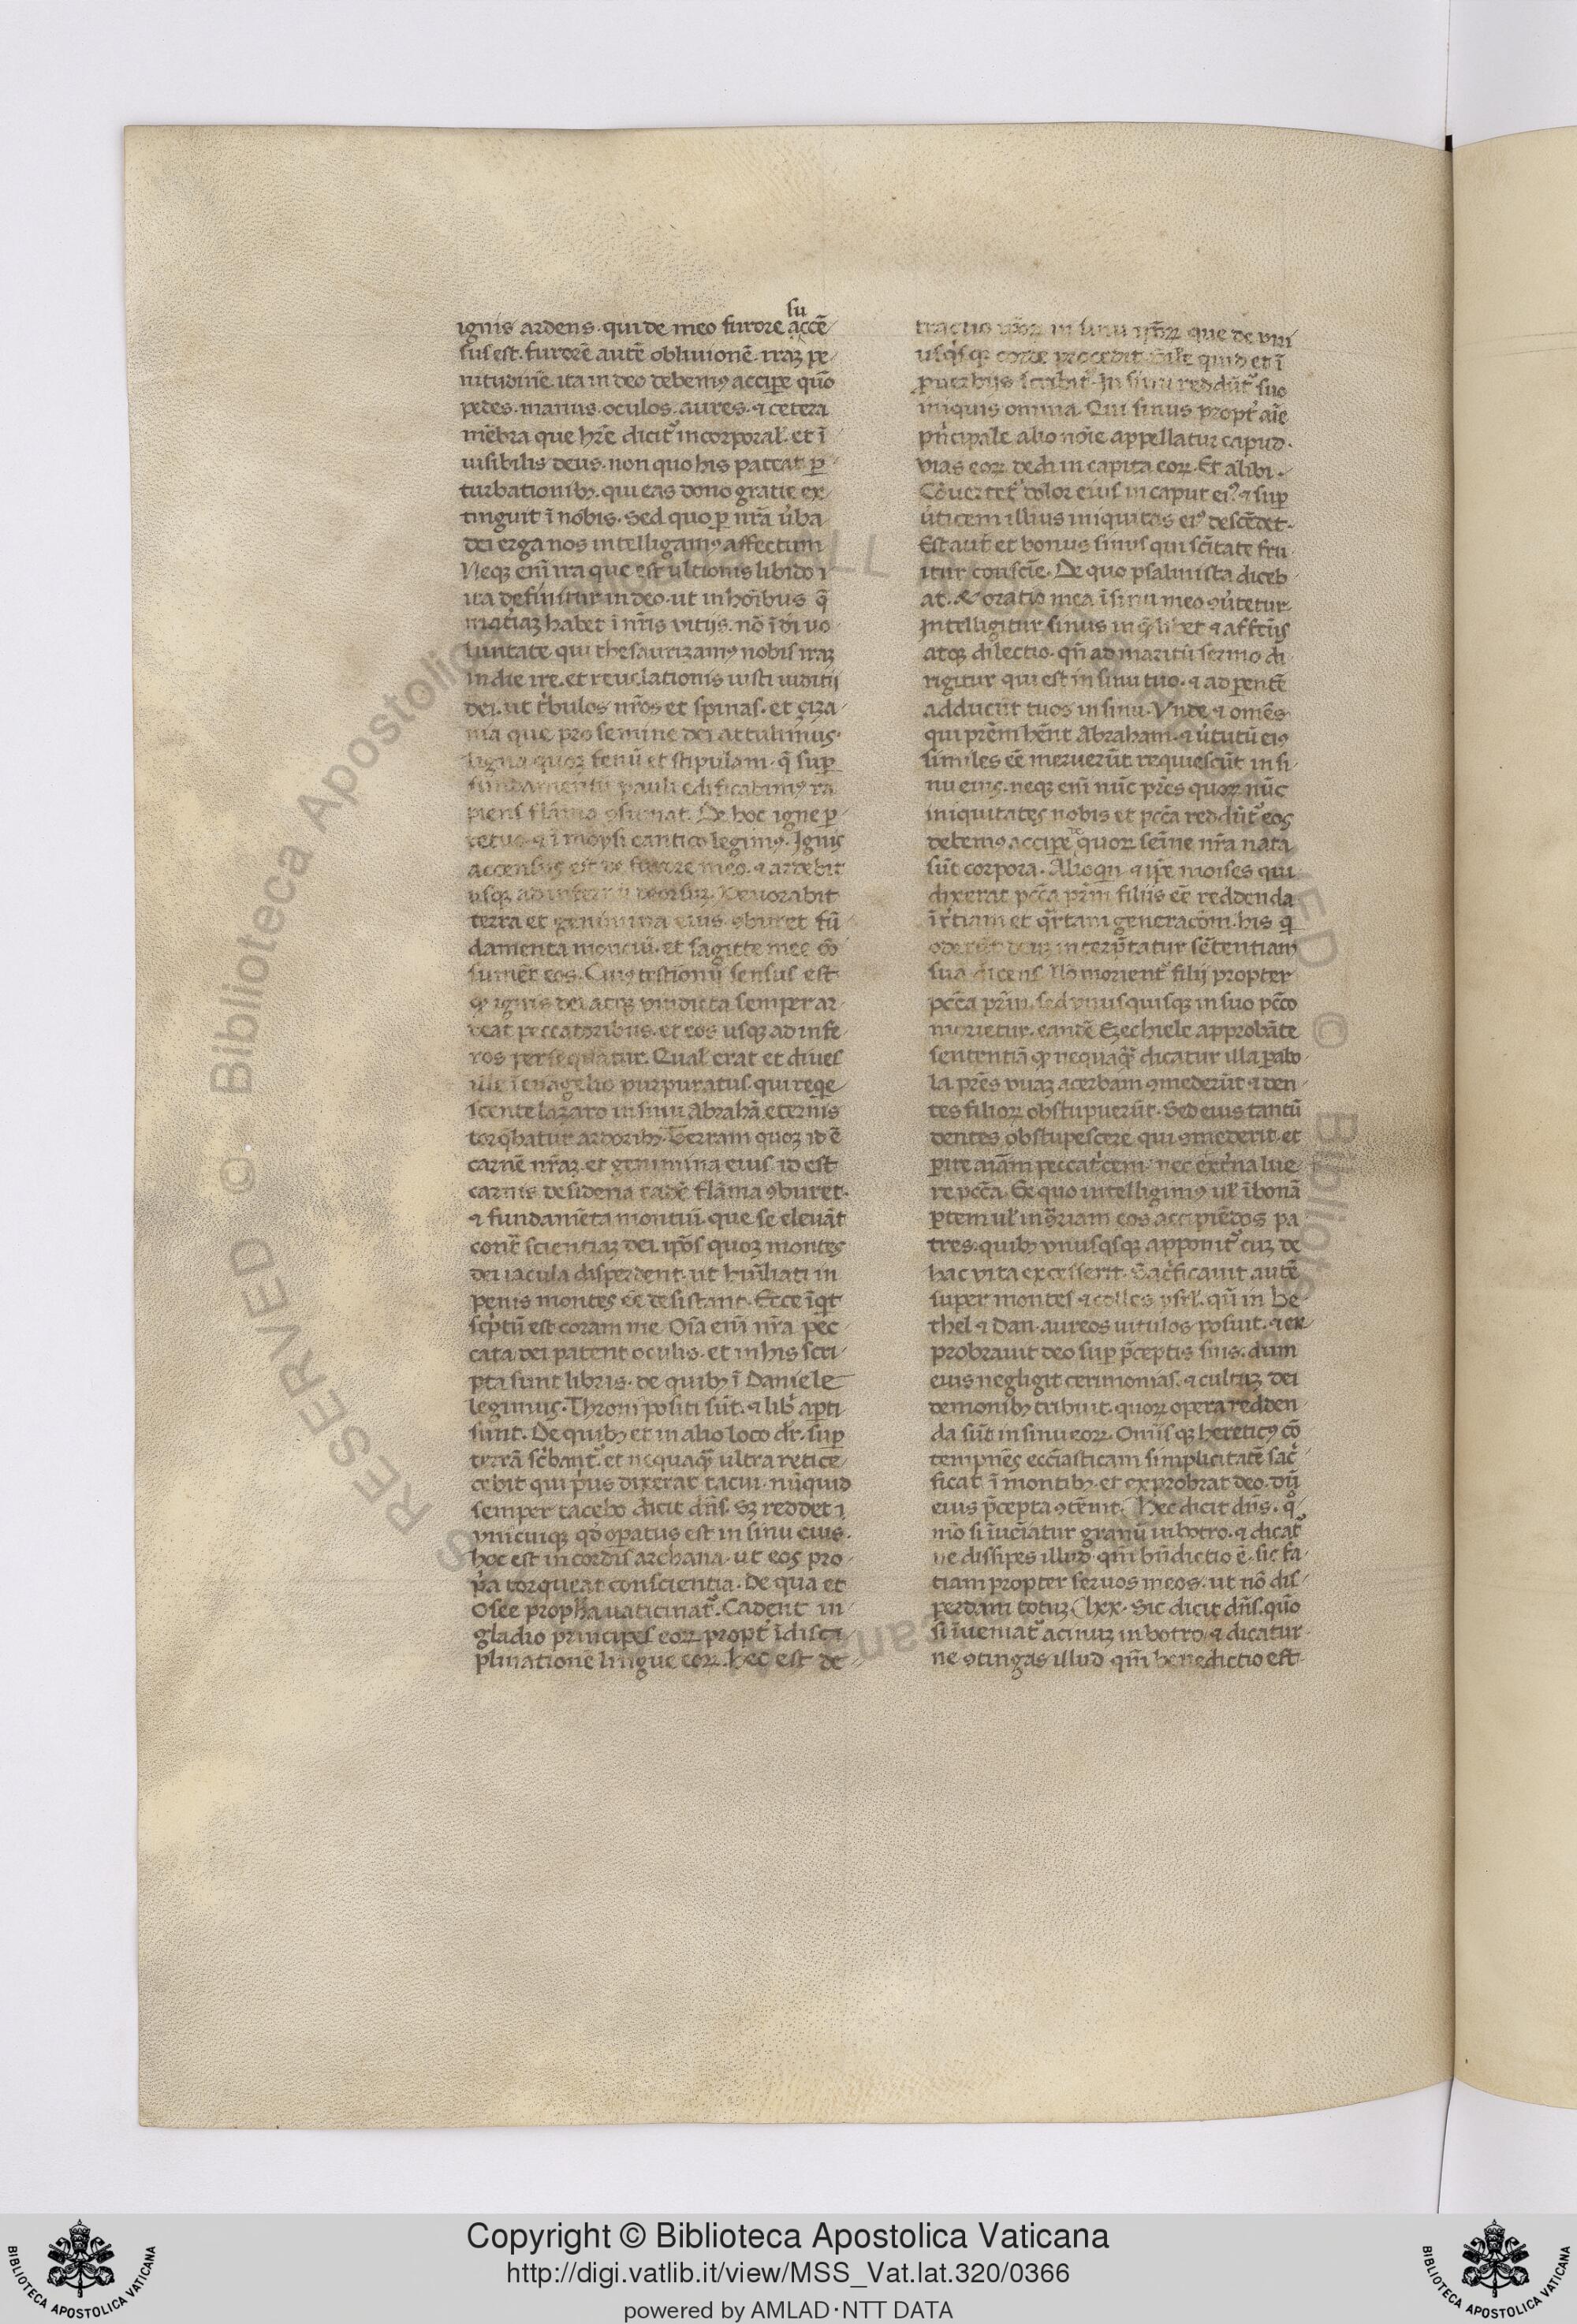 ignis ardens. qui de meo furore accē
su
sus est. furorē autē obliuionē. iraʒ pe
nitudinē. ita in deo debemꝯ accipe quō
pedes. manus. oculos. aures. ⁊ cetera
mēbra que hr̄e dicit᷑ incorporal᷒. et ī
uisibilis deus. non quo his pateat p
turbationibꝫ. qui eas dono gratie ex
tinguit ī nobis. Sed quo ꝑ nr̄a ūba
dei erga nos intelligamꝯ affectum
Neqꝫ enī ira que est ultionis libido i
ita definitur in deo. ut in hoībus q̄
matiaʒ habet ī nr̄is vitijs. nō ī di uo
luntate qui thesaurizamꝯ nobis iraʒ
in die ire. et reuelationis iusti iuditij
dei. ut tͥbulos nr̄os et spinas. et çiza
nia que pro semine dei attulimus.
ligna quoqꝫ fenū et stipulam. q̄ sup
fundamentū pauli edificabimꝯ ra
piens flāma ꝯsumat. De hoc igne ꝑ
petuo. ⁊ ī moysi cantico legimꝯ. Ignis
accensus est de furore meo. ⁊ ardebit
usqꝫ ad inferū deorsuʒ. Deuorabit
terra et genimina eius. ꝯburet fū
damenta montiū. et sagitte mee cō
sumēt eos. Cuiꝯ testionij sensus est
ꝙ ignis dei atqꝫ vindicta semper ar
deat peccatoribus. et eos usqꝫ ad infe
ros persequatur. Qual᷒ erat et diues
ille ī euāgelio purpuratus. qui reqͥe
scente lazaro in sinu Abrahā eternis
torqͤbatur ardoribꝫ. Terram quoqꝫ id ē
carnē nr̄aʒ. et genimina eius. id est
carnis desideria eadē flāma ꝯburet.
⁊ fundamēta montiū. que se eleuāt
contͣ scientiaʒ dei. ip̄os quoqꝫ montes
dei iacula disperdent. ut humiliati in
penis montes eē desistant. Ecce īqͥt
scͥptū est coram me. Oīa enī nr̄a pec
cata dei patent oculis. et in his scri
pta sunt libris. de quibꝫ ī Daniele
legimus. Throni positi sūt. ⁊ libͥ apti
sunt. De quibꝫ et in alio loco dr̄. sup
terrā scͥbant᷑. et nequaqͣ ultra retice
cebit qui pͥus dixerat tacui. nūquid
semper tacebo dicit dn̄s. Sʒ reddet i
vnicuiqꝫ qd̄ opatus est in sinu eius.
hoc est in cordis archana. ut eos pro
pͥa torqueat conscientia. De qua et
Osee propha uaticinat᷑. Cadent in
gladio principes eoꝝ propt᷑ īdisci
plinationē lingue eoꝝ. Hec est de
tractio ip̄oꝝ in sinu ip̄oꝝ que de
corde procedit. quid et ī
ꝓuerbijs scribit. In sinu reddūt᷑ suo
iniquis omnia. Qui sinus propt᷑ aīe
pͥncipale alio noīe appellatur capud.
vias eoꝝ dedi in capita eoꝝ. Et alibi.
Cōuertet᷑ dolor eius in caput eiꝯ. ⁊ sup
ūticem illius iniquitas eiꝯ descēdet.
Est aut̄ et bonus sinus qui scītate fru
itur conscīe. De quo psalmista diceb
at. & oratio mea ī sinu meo ꝯūtetur.
Intelligitur sinus in qͦ libet ⁊ affectus
atqꝫ dilectio. qn̄ ad maritū sermo di
rigitur qui est in sinu tuo. ⁊ ad ꝑentē
adducūt tuos in sinu. Vnde ⁊ omēs
qui prēm hēnt Abraham. ⁊ ūtutū eiꝯ
similes eē meruerūt. requiescūt in si
nu eius. neqꝫ enī nūc pr̄es quoꝝ nūc
iniquitates nobis et pcc̄a reddūt᷑ eos
debemꝯ accipe quoꝝ semīe nr̄a nata
sūt corpora. Alioqͥn ⁊ ip̄e moises qui
dixerat pcc̄a pr̄m filiis eē reddenda
ī tͥtiam et qͣrtam generacōm. his qͥ
oderūt deuʒ interpͤtatur sētentiam
suā dicens. Nō morient᷑ filij propter
pcc̄a pr̄m. sed vnusquisqꝫ in suo pcc̄o
morietur. eandē Ezechiele approbāte
sententiā ꝙ nequaqͣ dicatur illa ꝑabo
la. pr̄es vuaʒ acerbam ꝯmederūt ⁊ den
tes filioꝝ obstupuerūt. Sed eius tantū
dentes obstupescere qui ꝯmederit. et
ꝑire aīam peccatͥcem. nec extͥna lue
re pcc̄a. Ex quo intelligimꝯ ul᷒ ī bonā
ꝑtem ul᷒ in ꝯͣriam eos accipiēdos pa
tres. quibꝫ vnusqͥsqꝫ apponit᷑ cuʒ de
hac vita excesserit. Sacͥficauit autē
super montes ⁊ colles ysrl᷒. qn̄ in be
thel ⁊ Dan. aureos uitulos posuit. ⁊ ex
probrauit deo sup pͤceptis suis. dum
eius negligit cerimonias. ⁊ cultuʒ dei
demonibꝫ tribuit. quoꝝ opera redden
da sūt in sinu eoꝝ. Omīs qꝫ hereticꝯ cō
tempnēs ecc̄iasticam simplicitatē sacͥ
ficat ī montibꝫ. et exprobrat deo. dū
eius pͤcepta ꝯtēnit. Hec dicit dn̄s. qͦ
mō si īueīatur granū in botro. ⁊ dicat᷑
ne dissipes illud. qm̄ bn̄dictio ē. sic fa
ciam propter seruos meos. ut nō dis
perdam totuʒ. lxx. Sic dicit dn̄s. quō
si īueniat᷑ acinuʒ in botro. ⁊ dicatur
ne ꝯtingas illud qm̄ benedictio est
Copyright © Biblioteca Apostolica Vaticana
http://digi.vatlib.it/view/MSS_Vat.lat.320/0366
powered by AMLAD·NTT DATA
BIBLIOTECA APOSTOLICA VATICANA
BIBLIOTECA APOSTOLICA VATICANA